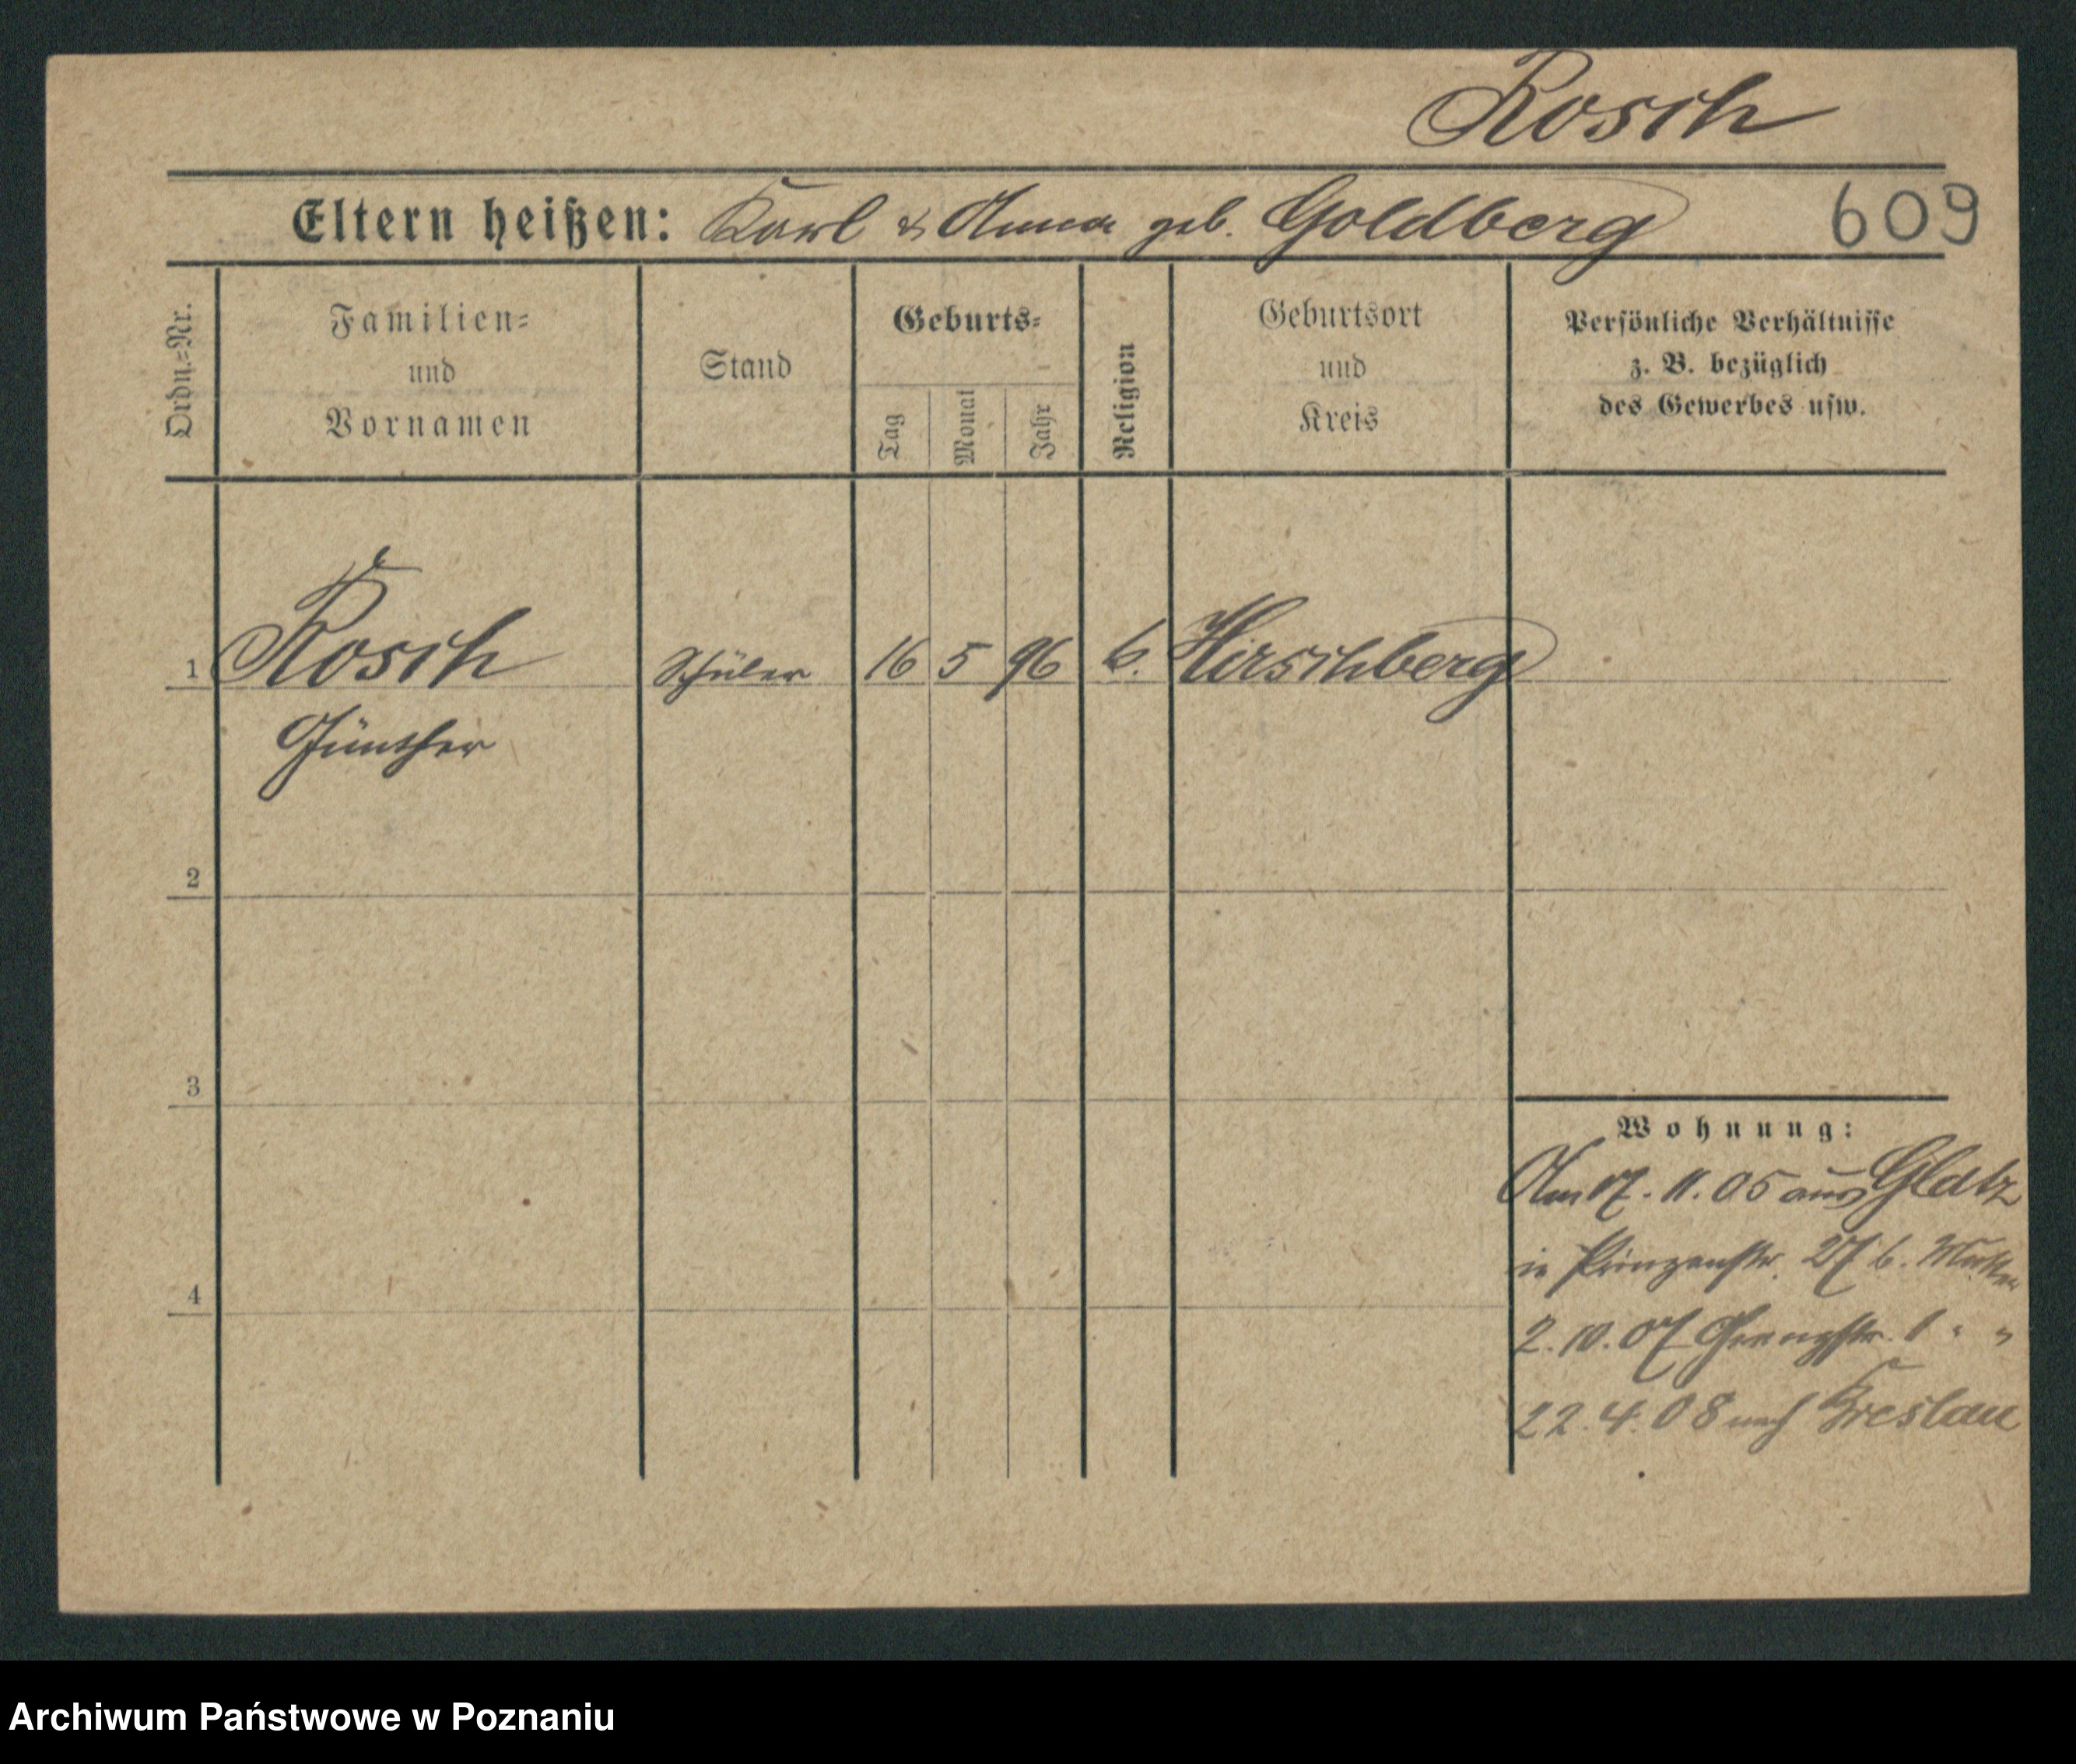 Rosch
Eltern heißen: Karl & Anna geb. Goldberg
609
Ordn.=Nr.
Familien=
und
Vornamen
Stand
Geburts=
Tag
Monat
Jahr
Religion
Geburtsort
und
Kreis
Persönliche Verhältnisse
z. B. bezüglich
des Gewerbes usw.
1 Rosch Schüler 16 5 96 Hirschberg
Günther
2
3
4
Wohnung:
Am 17. 11. 05 aus Glatz
in Prinzenstr. 27 b. Mutter
2. 10. 07 Grenzstr. 1 " "
22. 4. 08 nach Breslau
Archiwum Państwowe w Poznaniu